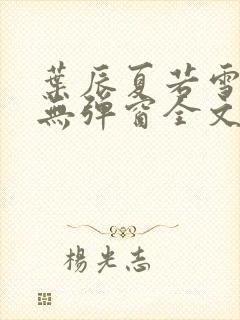 葉辰夏若雪
無彈窗全文
楊光志